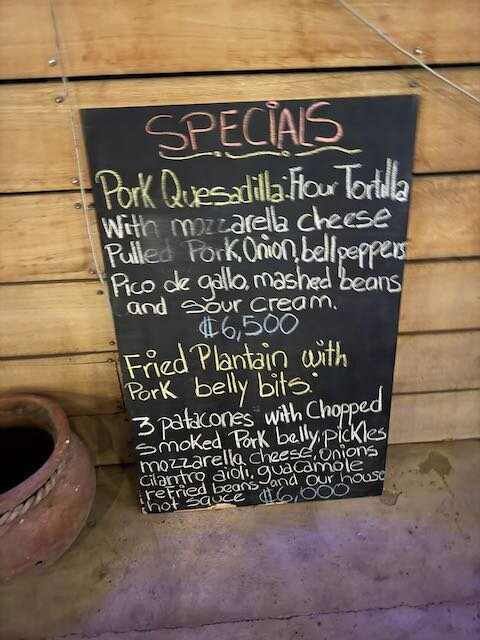 SPECIALS
Pork Quesadilla: Flour Tortilla
With mozzarella cheese
Pulled Pork, Onion, bell peppers
Pico de gallo, mashed beans
and sour cream.
₡6,500
Fried Plantain with
Pork belly bits:
3 patacones with Chopped
smoked Pork belly, pickles
mozzarella cheese, Onions
cilantro aioli, guacamole
refried beans and our house
hot sauce ₡6,000